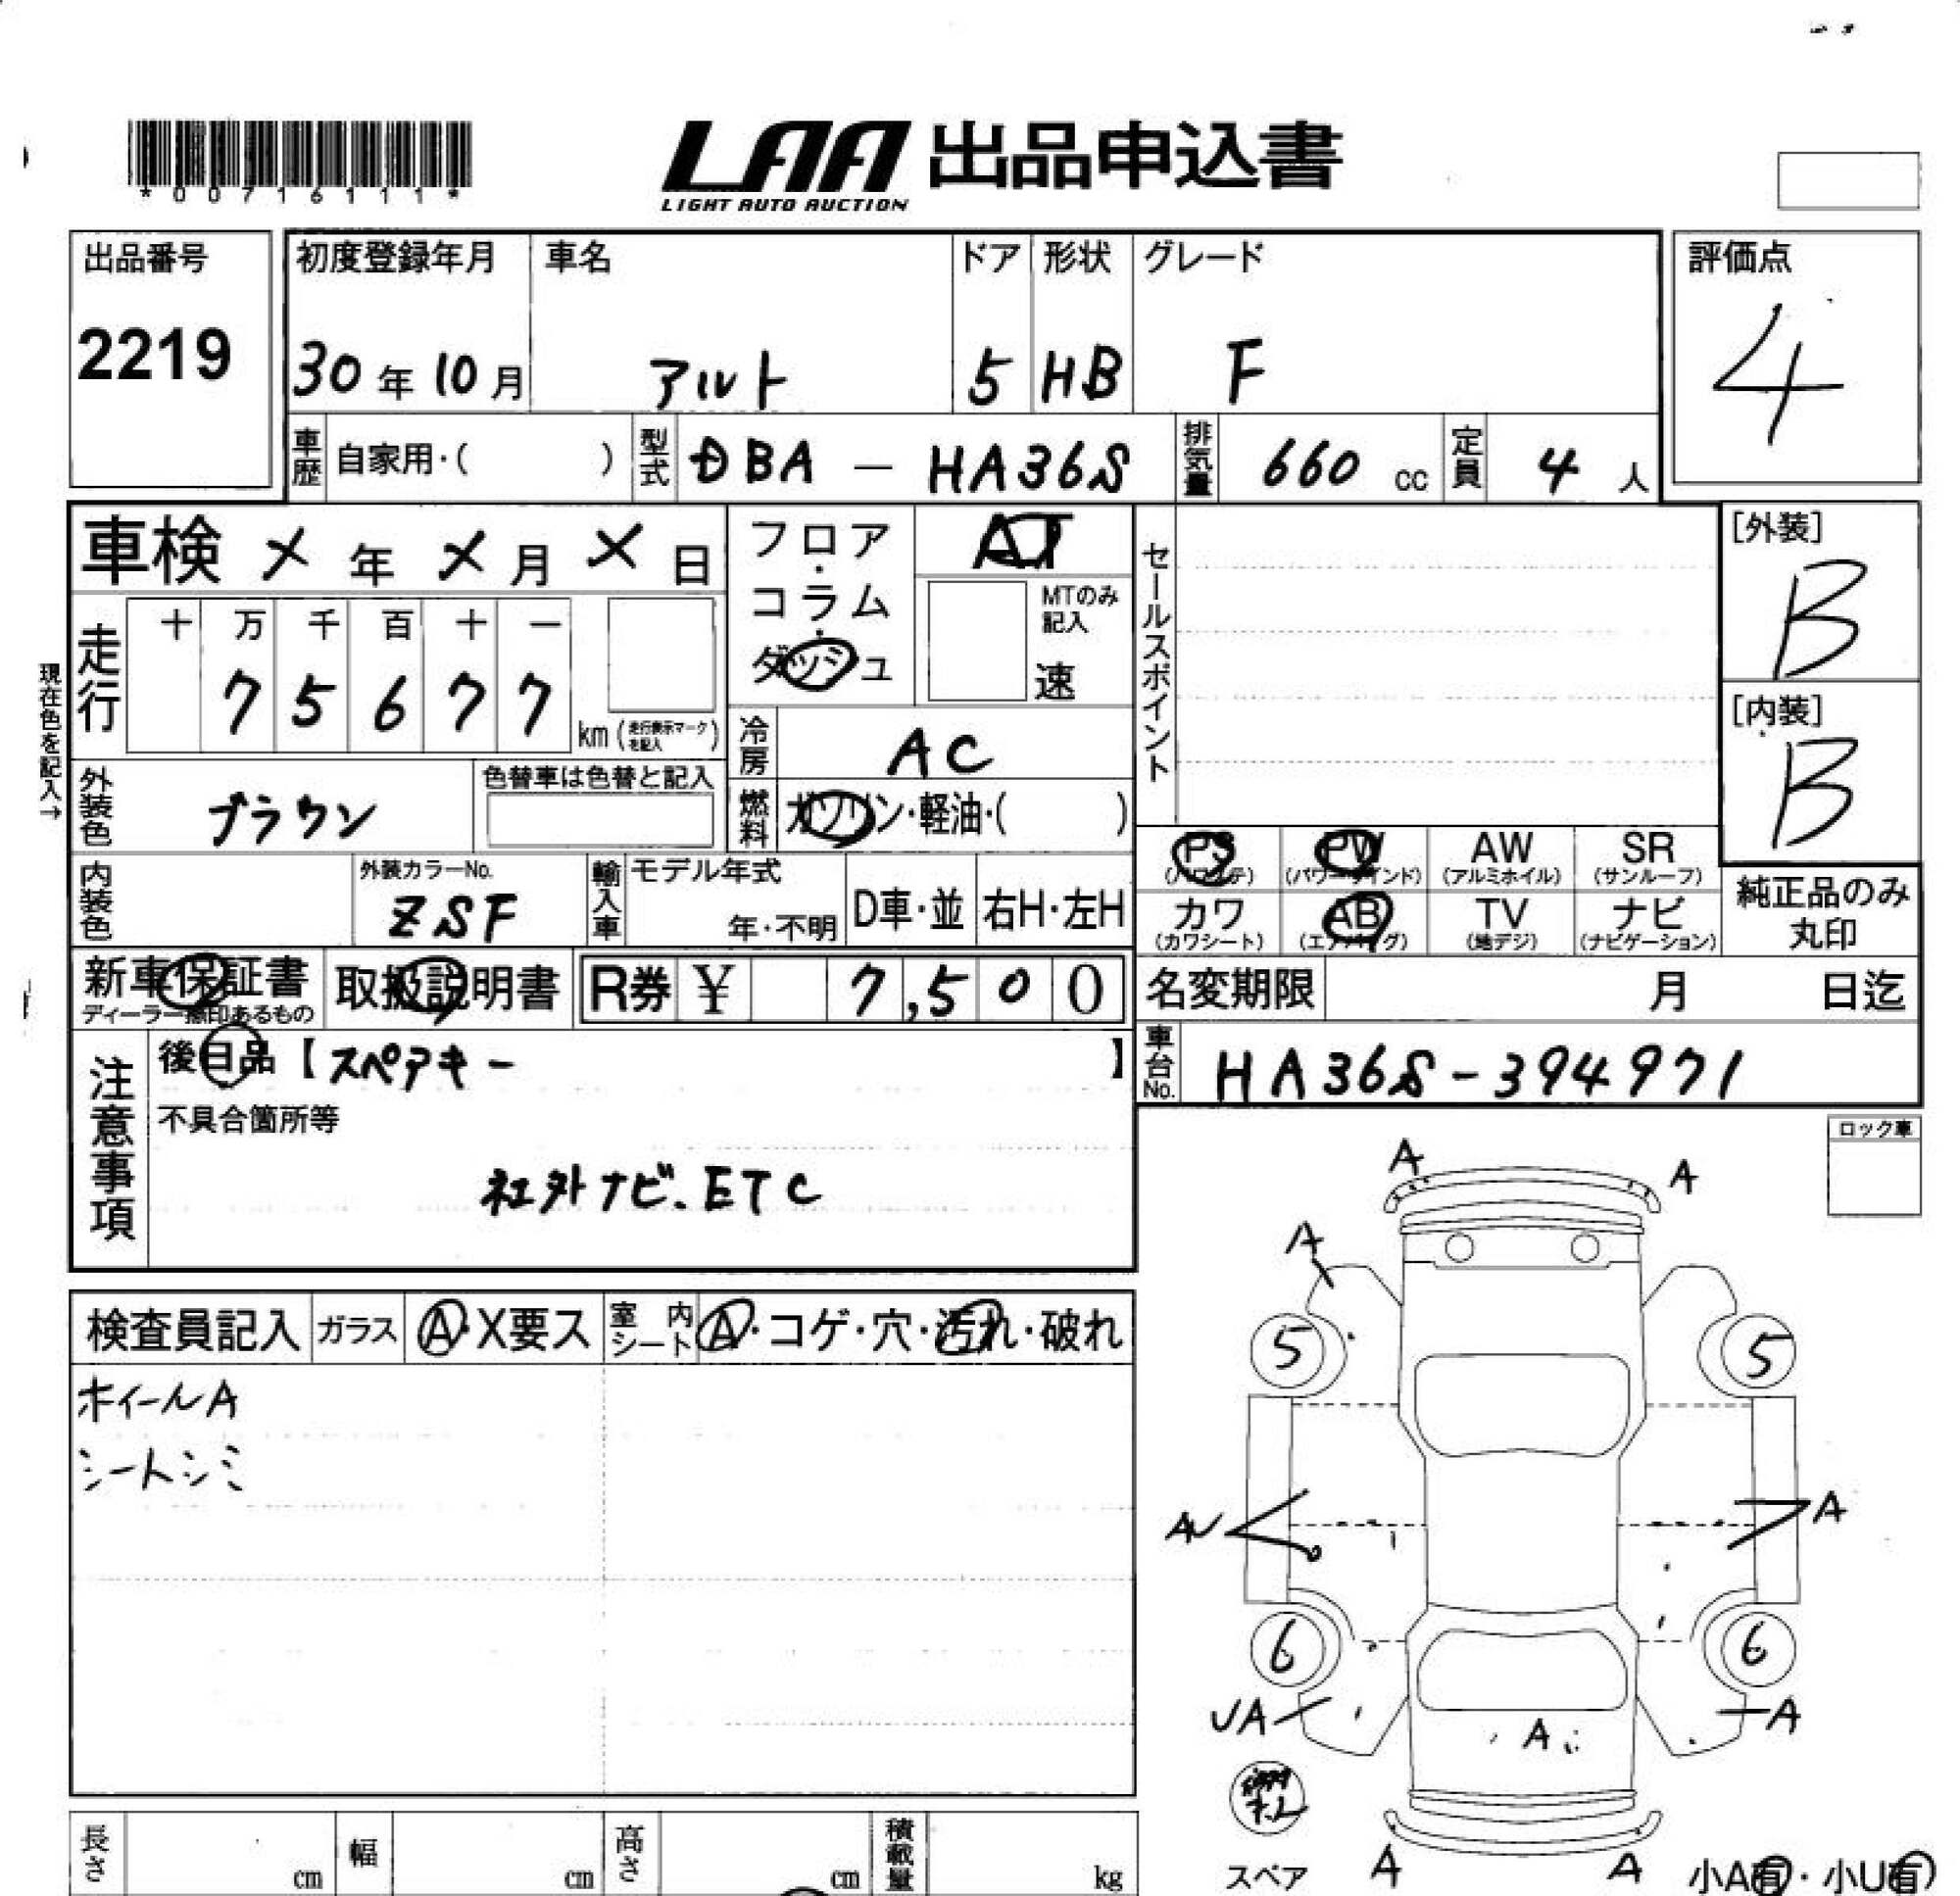 *00716111*
LAA 出品申込書
LIGHT AUTO AUCTION
出品番号
2219
初度登録年月
30年10月
車名
アルト
ドア
5
形状
HB
グレード
F
評価点
4
車歴
自家用・( )
型式
DBA - HA36S
排気量
660 cc
定員
4 人
車検 X 年 X 月 X 日
フロア・コラム・ダッシュ
AT
MTのみ記入
速
セールスポイント
[外装]
B
[内装]
B
現在色を記入→
走行
十 万 千 百 十 一
7 5 6 7 7
km (走行表示マークを記入)
冷房
AC
外装色
ブラウン
色替車は色替と記入
燃料
ガソリン・軽油・( )
内装色
外装カラーNo.
ZSF
輸入車
モデル年式
年・不明
D車・並
右H・左H
PS (パワステ)
PW (パワーウインド)
AW (アルミホイル)
SR (サンルーフ)
カワ (カワシート)
AB (エアバッグ)
TV (地デジ)
ナビ (ナビゲーション)
純正品のみ丸印
新車保証書
ディーラー捺印あるもの
取扱説明書
R券 ¥ 7,500
名変期限 月 日迄
注意事項
後日品【スペアキー】
不具合箇所等
社外ナビ、ETC
車台No.
HA36S-394971
ロック車
検査員記入
ガラス
A・X要ス
室内シート
A・コゲ・穴・汚れ・破れ
ホイールA
シートシミ
A
A
A
5
5
AU
A
6
6
UA
A
A
スペア
A
A
小A有・小U有
長さ cm
幅 cm
高さ cm
積載量 kg